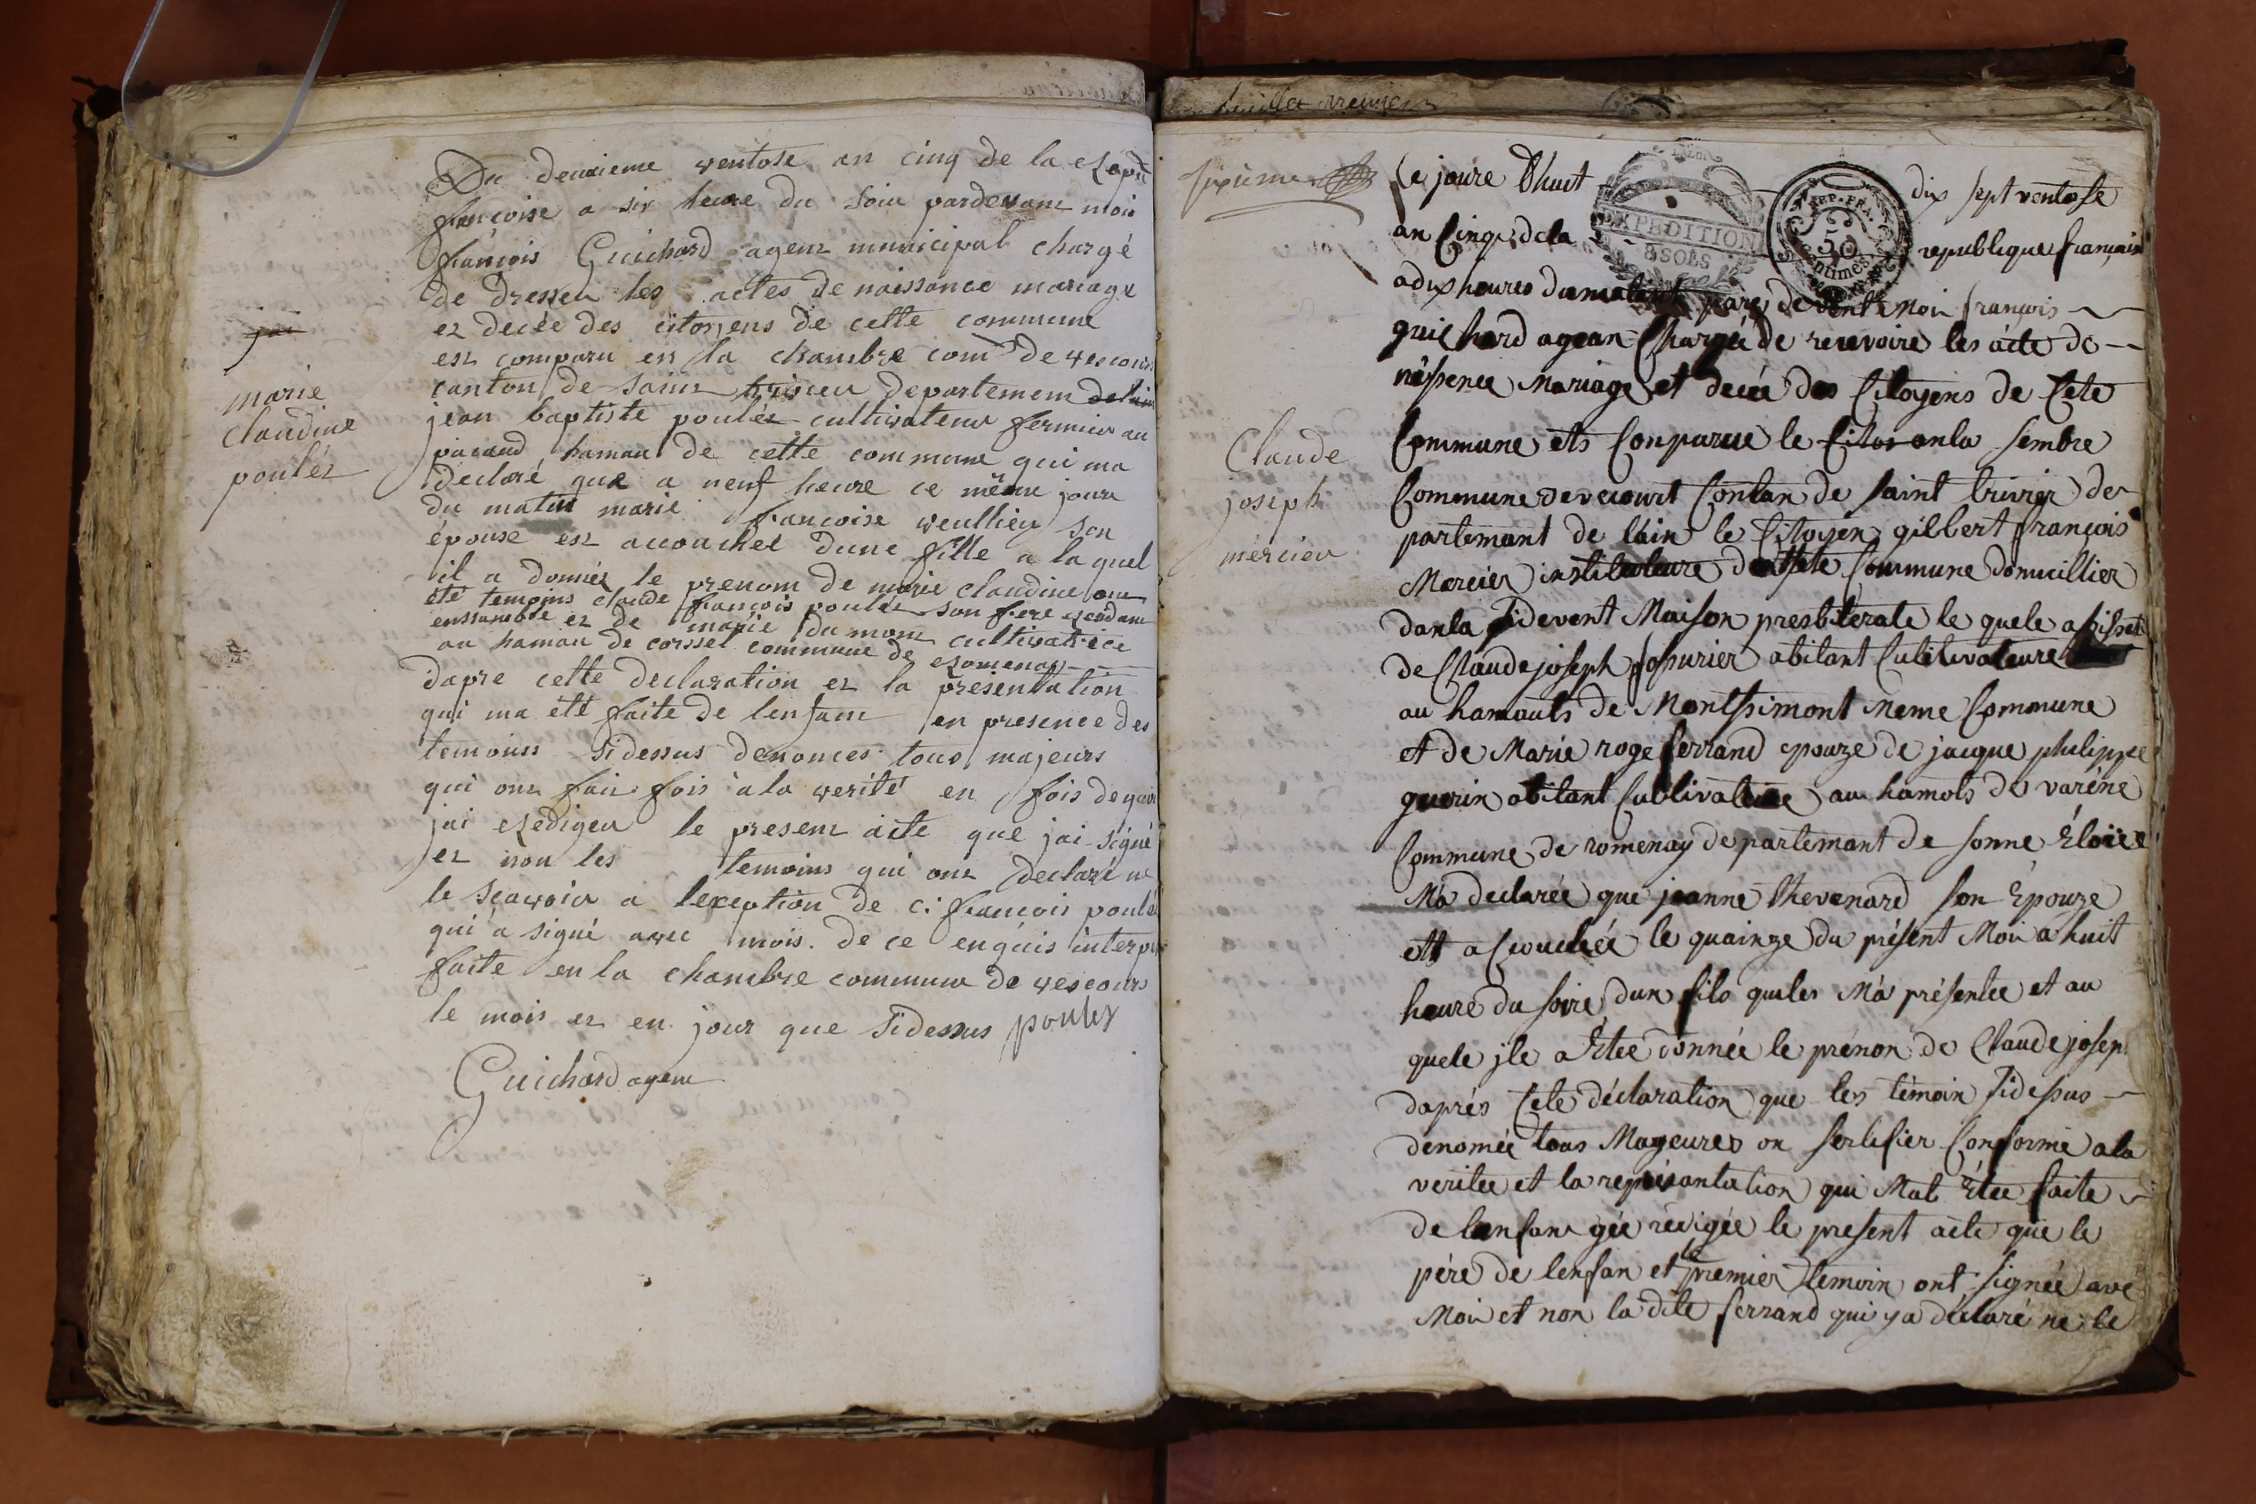 Du deuxieme ventose an cinq de la Rep
francoise a six heure du soir pardevant moi
francois Guichard agent municipal chargé
de dresser les actes de naissance mariage
et decée des citoyens de cette commune
est comparu en la chambre com de vescours
canton de saint trivier departement de lain
jean baptiste poulér cultivateur fermier au
hamau de cette commune qui ma
declaré que a neuf heure ce même jour
du matin marie francoise veullien son
épouse est accouchée dune fille a la quel
il a donnée le prenom de marie claudine ont
été temoins claude francois poulér son frere residant
enssamble et de marie du mont cultivatrice
au hamau de corssel commune de Romenay
dapre cette declaration et la presentation
qui ma été faite de lenfant en presence des
temoins sidessus denonces tous majeurs
qui ont fait fois à la verité en fois de quoi
jai Rediger le present acte que jai signé
et non les temoins qui ont declaré ne
le scavoir a lexception de c. francois poulér
qui a signé avec mois. de ce enquis interpe
faite en la chambre commune de vescours
le mois et en jour que sidessus poulér
Guichard agent
marie
claudine
poulér
feuillet
sixieme
Claude
joseph
mercier
Ce joure Dhuit dix sept ventose
an Cinq de la republique français
EXPEDITION
8 SOLS
REP. FRA.
50
centimes
a dix heures du matint pare de vent Moi françois
guichard agean Chargée de recevoire les acte de
néssence Mariage et decée des Citoyens de Cete
Commune ets Conparue le an la sembre
Commune de vecourt Contan de saint trivier de
partemant de lain le Citoyen gilbert françois
Mercier instituteure de Cete Commune domicillier
dan la sidevent Maison presbiterale le quele assisset
de Claude joseph abitant Cultivateure
au hamauts de Montsimont Meme Commune
et de Marie roge ferrand epouze de jacque philippe
guerin abitant Cultivateure au hamots de varéne
Commune de romenay departemant de sonne Eloire
Ma declarée que jeanne thevenard son Epouze
ett acouchée le quainze du présent Moi a huit
heure du soire dun fils quiles Ma présentée et au
quele jle a Etee donnée le prénon de Claude josep
daprés Cete déclaration que les témoin sidessus
denomée tous Mageures on sertifier Conforme a la
veritee et la représantation qui Mat Etee faite
de lenfan gée rédigée le present acte que le
pére de lenfan et le premier temoin ont signée ave
Moi et non la dite ferrand qui ya déclaré ne le